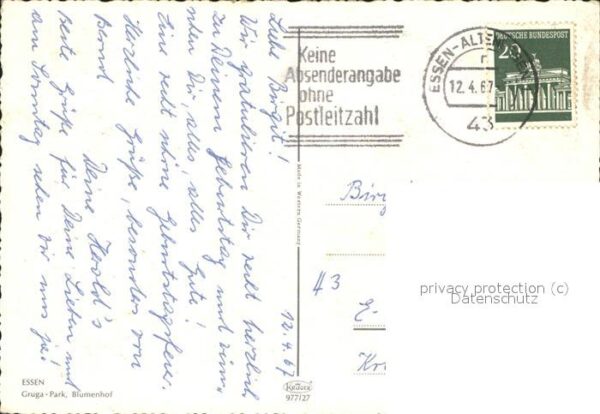 12.4.67
Liebe Birgit!
Wir gratulieren Dir recht herzlich
zu Deinem Geburtstag und wün-
schen Dir alles, alles Gute!
Eine recht schöne Geburtstagsfeier.
Herzliche Grüße, besonders von
Bernd
Deine Herold's
beste Grüße für Deine Lieben und
am Sonntag sehen wir uns ja!
Keine
Absenderangabe
ohne
Postleitzahl
ESSEN-ALTENESSEN
12.4.67
43
DEUTSCHE BUNDESPOST
20
Made in Western Germany
Birg
43
privacy protection (c)
Datenschutz
Kr
ESSEN
Gruga-Park, Blumenhof
Krüger
977/27